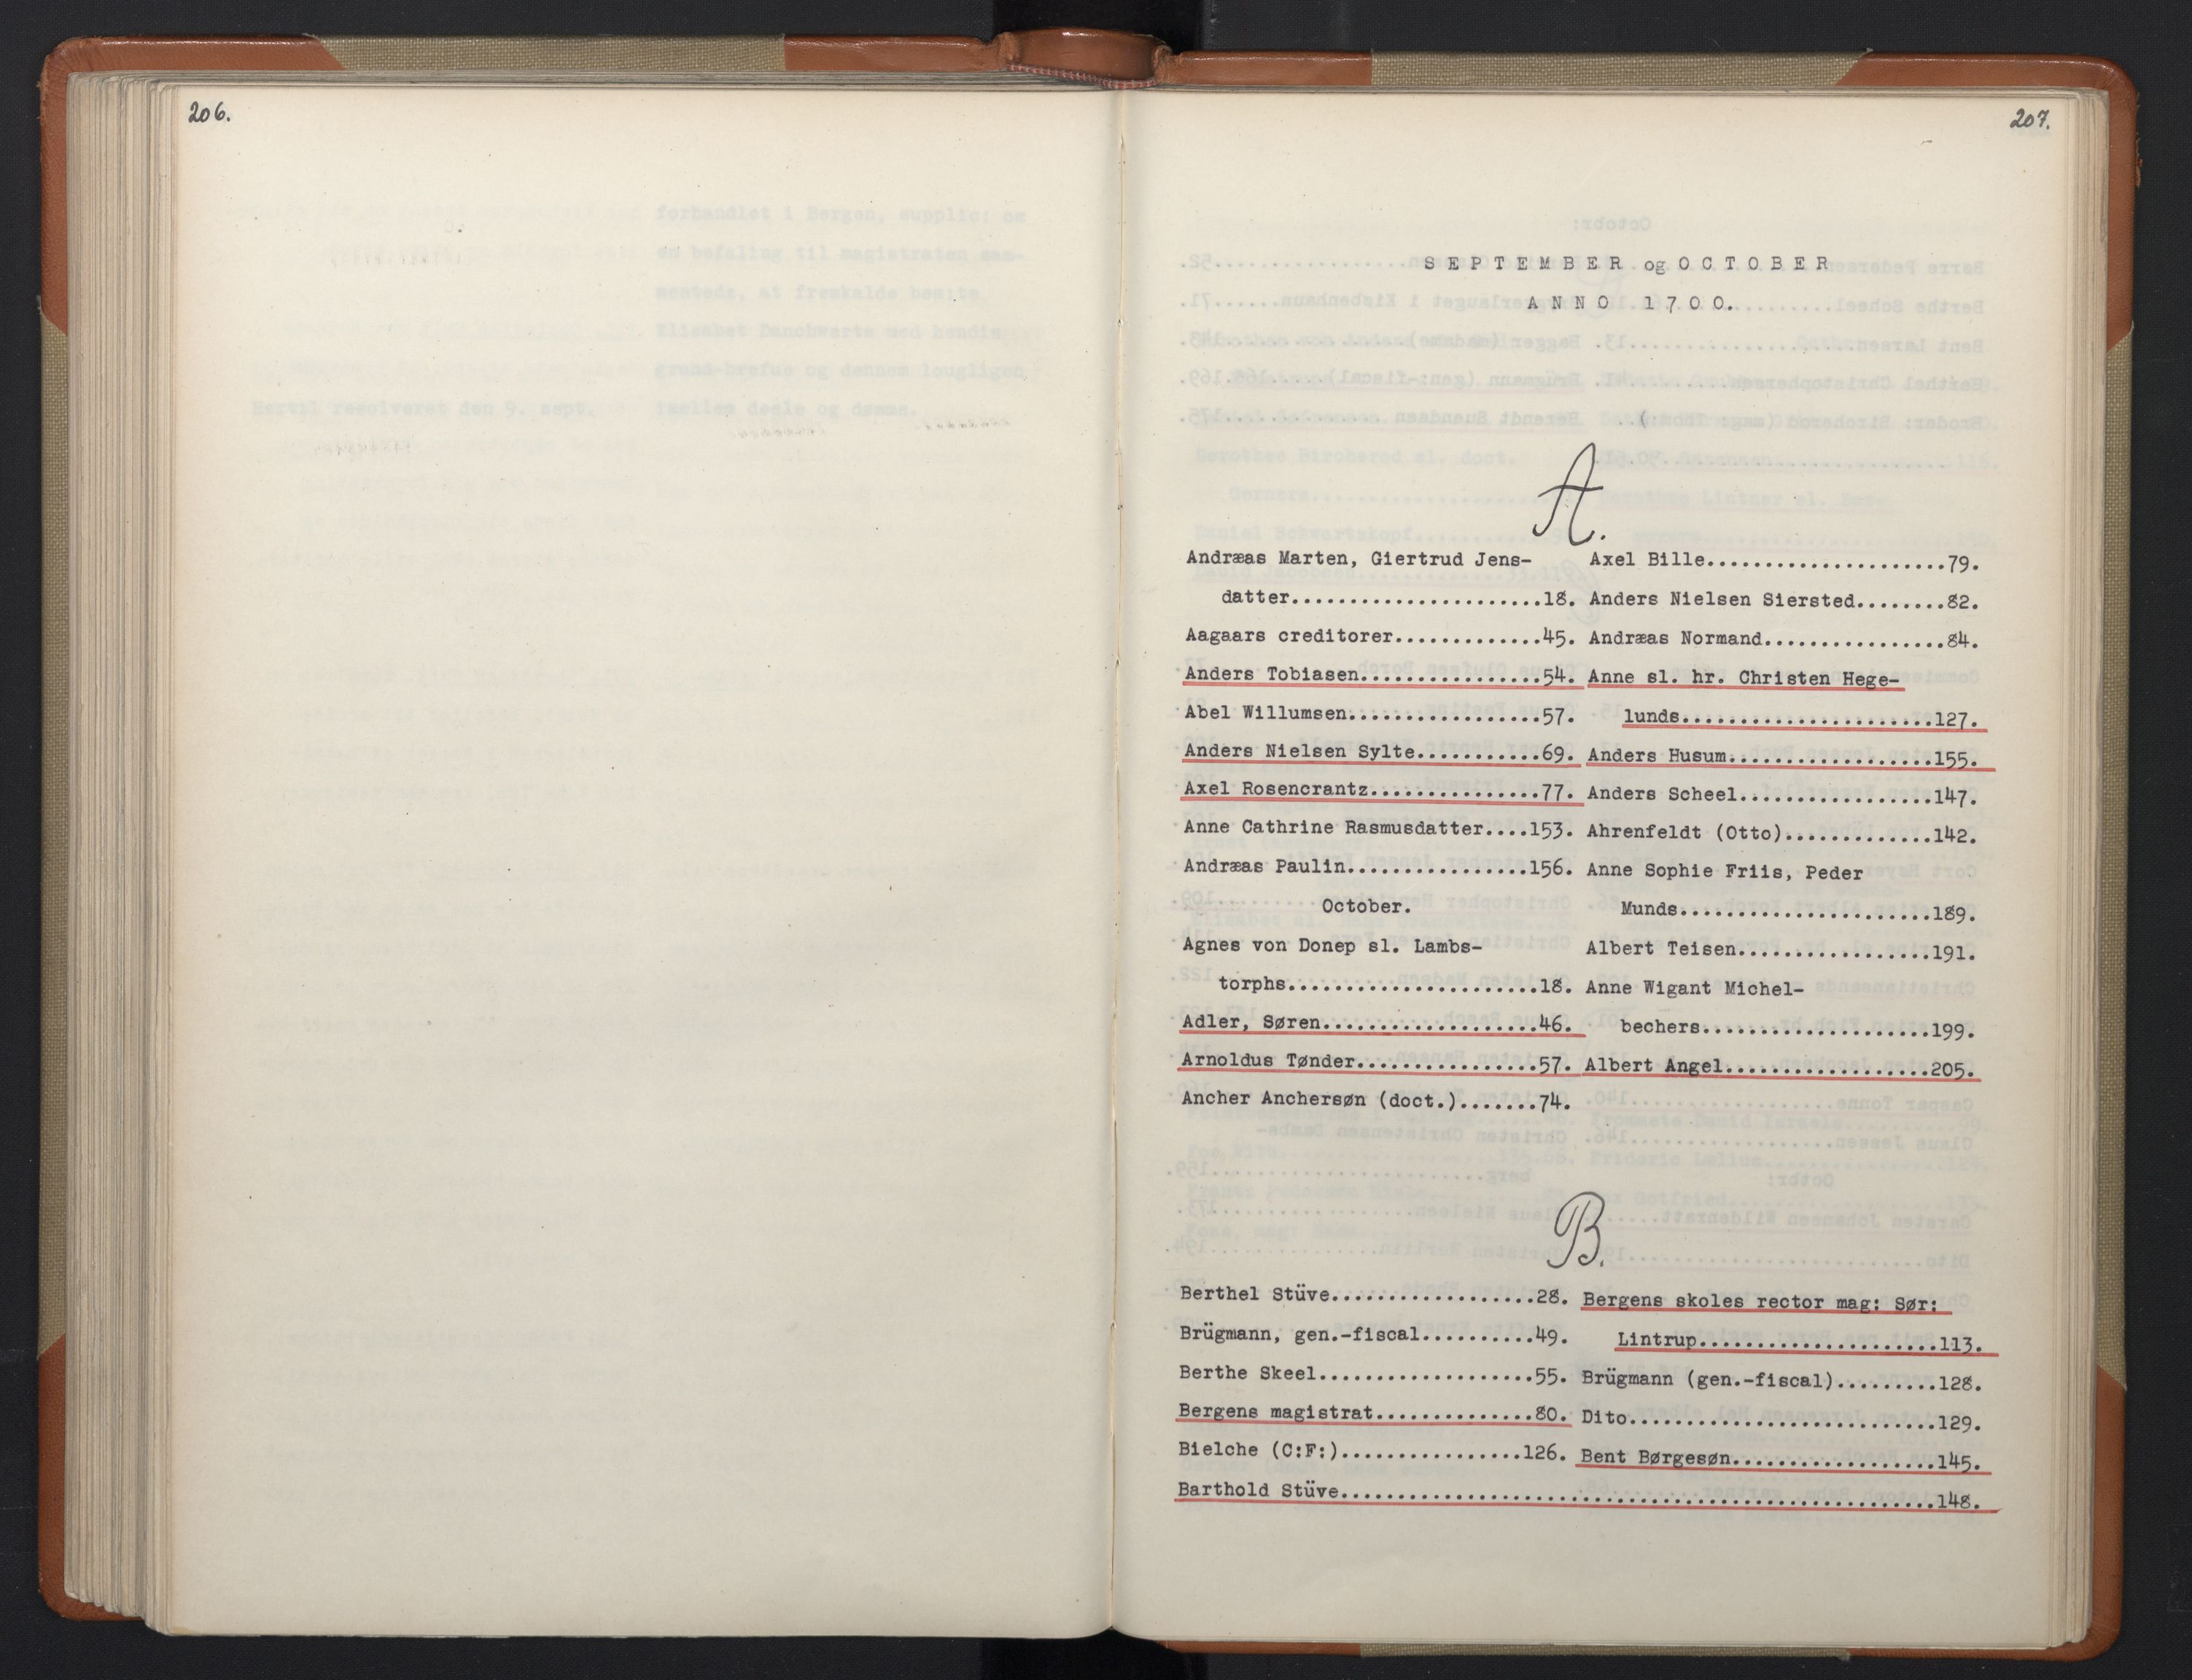 206.
207.
SEPTEMBER og OCTOBER
ANNO 1700.
A.
Andræas Marten, Giertrud Jens-
datter......................18.
Aagaars creditorer.............45.
Anders Tobiasen................54.
Abel Willumsen.................57.
Anders Nielsen Sylte...........69.
Axel Rosencrantz...............77.
Anne Cathrine Rasmusdatter....153.
Andræas Paulin................156.
October.
Agnes von Donep sl. Lambs-
torphs......................18.
Adler, Søren...................46.
Arnoldus Tønder................57.
Ancher Anchersøn (doct.).......74.
Axel Bille.....................79.
Anders Nielsen Siersted........82.
Andræas Normand................84.
Anne sl. hr. Christen Hege-
lunds......................127.
Anders Husum..................155.
Anders Scheel.................147.
Ahrenfeldt (Otto).............142.
Anne Sophie Friis, Peder
Munds......................189.
Albert Teisen.................191.
Anne Wigant Michel-
bechers....................199.
Albert Angel..................205.
B.
Berthel Stüve..................28.
Brügmann, gen.-fiscal..........49.
Berthe Skeel...................55.
Bergens magistrat..............80.
Bielche (C:F:)................126.
Bergens skoles rector mag: Sør:
Lintrup.....................113.
Brügmann (gen.-fiscal).........128.
Dito...........................129.
Bent Børgesøn..................145.
Barthold Stüve....................................................148.